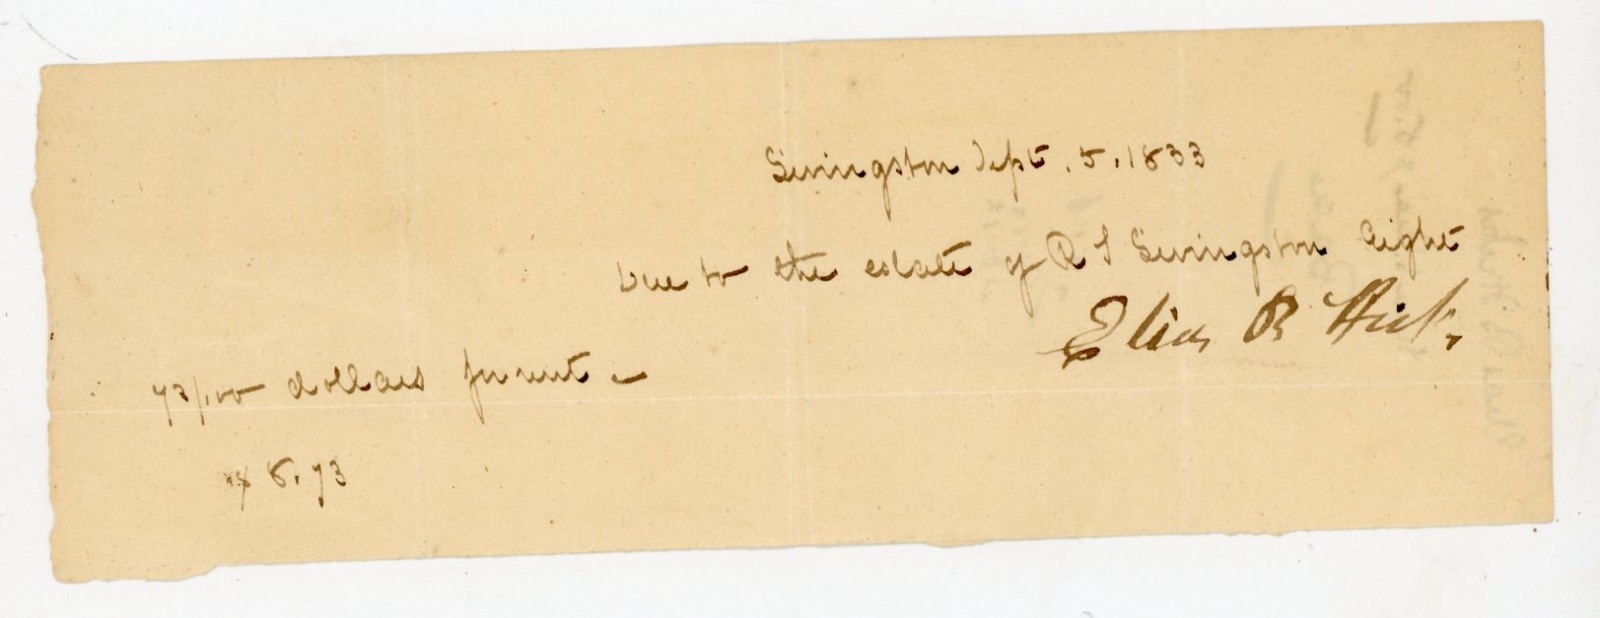 Livingston Sept. 5. 1833
Due to the estate of R L Livingston Eight
73/100 dollars for rent –
$ 8.73
Elias R